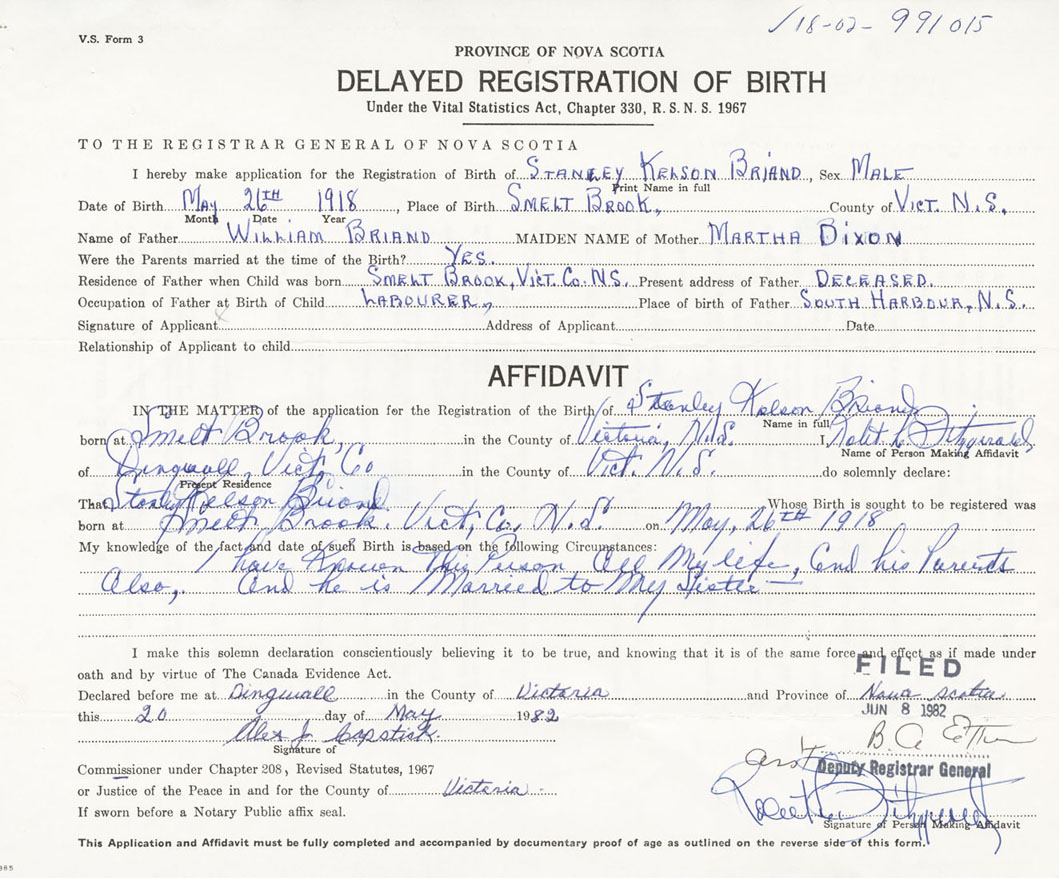 18-02-991015
V.S. Form 3
PROVINCE OF NOVA SCOTIA
DELAYED REGISTRATION OF BIRTH
Under the Vital Statistics Act, Chapter 330, R.S.N.S. 1967
TO THE REGISTRAR GENERAL OF NOVA SCOTIA
I hereby make application for the Registration of Birth of STANLEY KELSON BRIAND, Sex MALE
Print Name in full
Date of Birth MAY 26TH 1918, Place of Birth SMELT BROOK, County of VICT. N.S.
Month Date Year
Name of Father WILLIAM BRIAND MAIDEN NAME of Mother MARTHA DIXON
Were the Parents married at the time of the Birth? YES.
Residence of Father when Child was born SMELT BROOK, VICT. CO. NS. Present address of Father DECEASED.
Occupation of Father at Birth of Child LABOURER, Place of birth of Father SOUTH HARBOUR, N.S.
Signature of Applicant Address of Applicant Date
Relationship of Applicant to child
AFFIDAVIT
IN THE MATTER of the application for the Registration of the Birth of Stanley Kelson Briand
Name in full
born at Smelt Brook, in the County of Victoria, N.S. I, Robt L Fitzgerald,
Name of Person Making Affidavit
of Dingwall, Vict, Co in the County of Vict. N.S. do solemnly declare:
Present Residence
That Stanley Kelson Briand Whose Birth is sought to be registered was
born at Smelt Brook. Vict, Co, N.S. on May, 26TH 1918
My knowledge of the fact and date of such Birth is based on the following Circumstances:
I have Known This Person All My life, And his Parents
Also,. And he is Married to My Sister
I make this solemn declaration conscientiously believing it to be true, and knowing that it is of the same force and effect as if made under
oath and by virtue of The Canada Evidence Act.
FILED
Declared before me at Dingwall in the County of Victoria and Province of Nova Scotia
JUN 8 1982
this 20 day of May 1982
Alex J. Capstick.
Signature of
Commissioner under Chapter 208, Revised Statutes, 1967
Deputy Registrar General
or Justice of the Peace in and for the County of Victoria
If sworn before a Notary Public affix seal.
Signature of Person Making Affidavit
This Application and Affidavit must be fully completed and accompanied by documentary proof of age as outlined on the reverse side of this form.